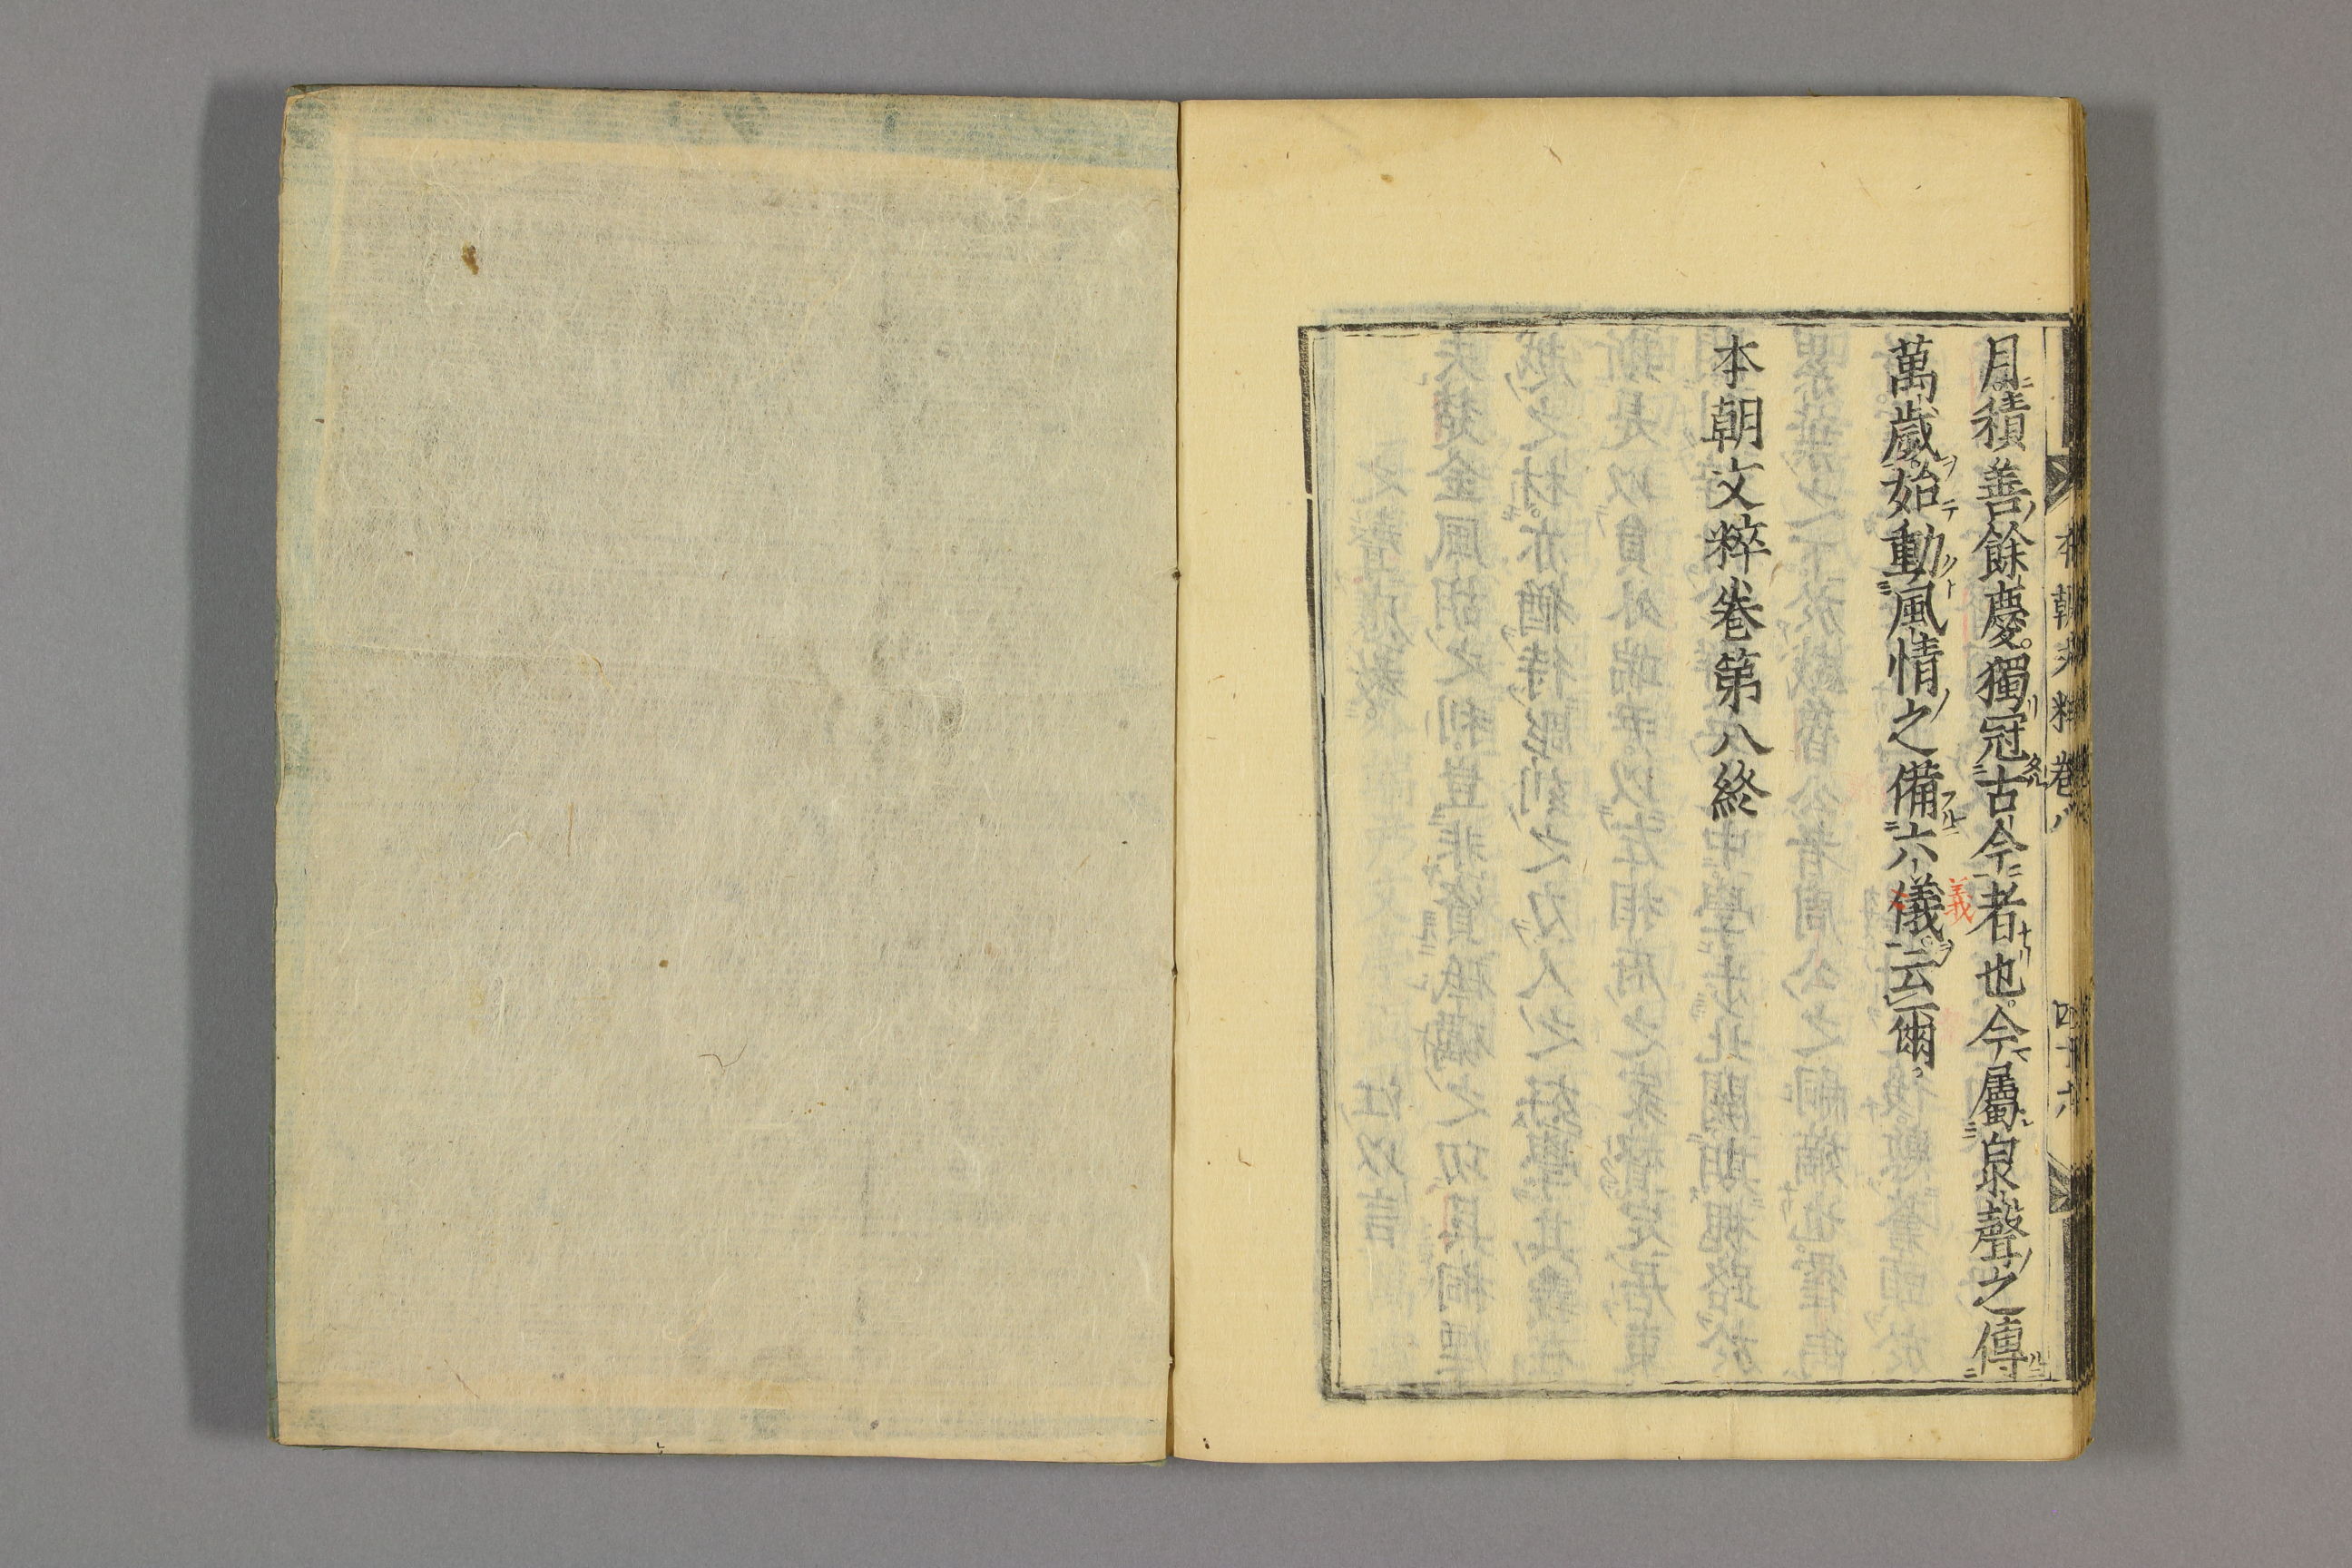 本朝文粹卷八 四十六
月積善餘慶。獨冠古今者也。今屬泉聲之傳
萬歲。始動風情之備六儀云爾。
義
本朝文粹卷第八終